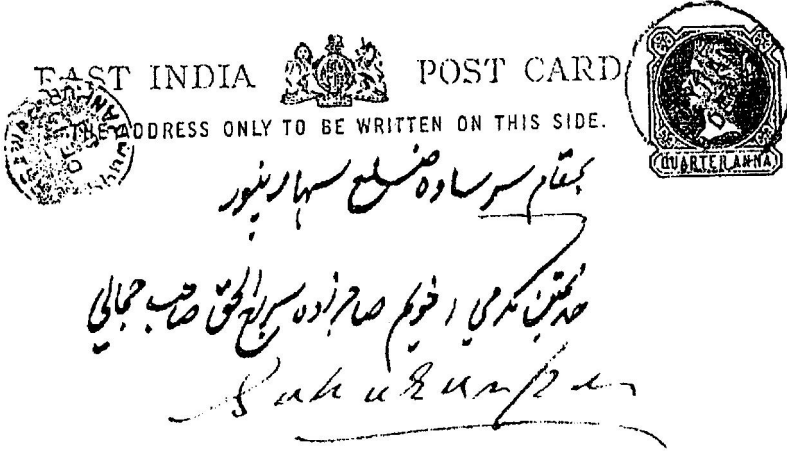 EAST INDIA POST CARD
THE ADDRESS ONLY TO BE WRITTEN ON THIS SIDE.
QUARTER ANNA
بمقام سرساوہ ضلع سہارنپور
مکرمی اخویم صاحبزادہ سراج الحق صاحب جمالی
Saharanpur